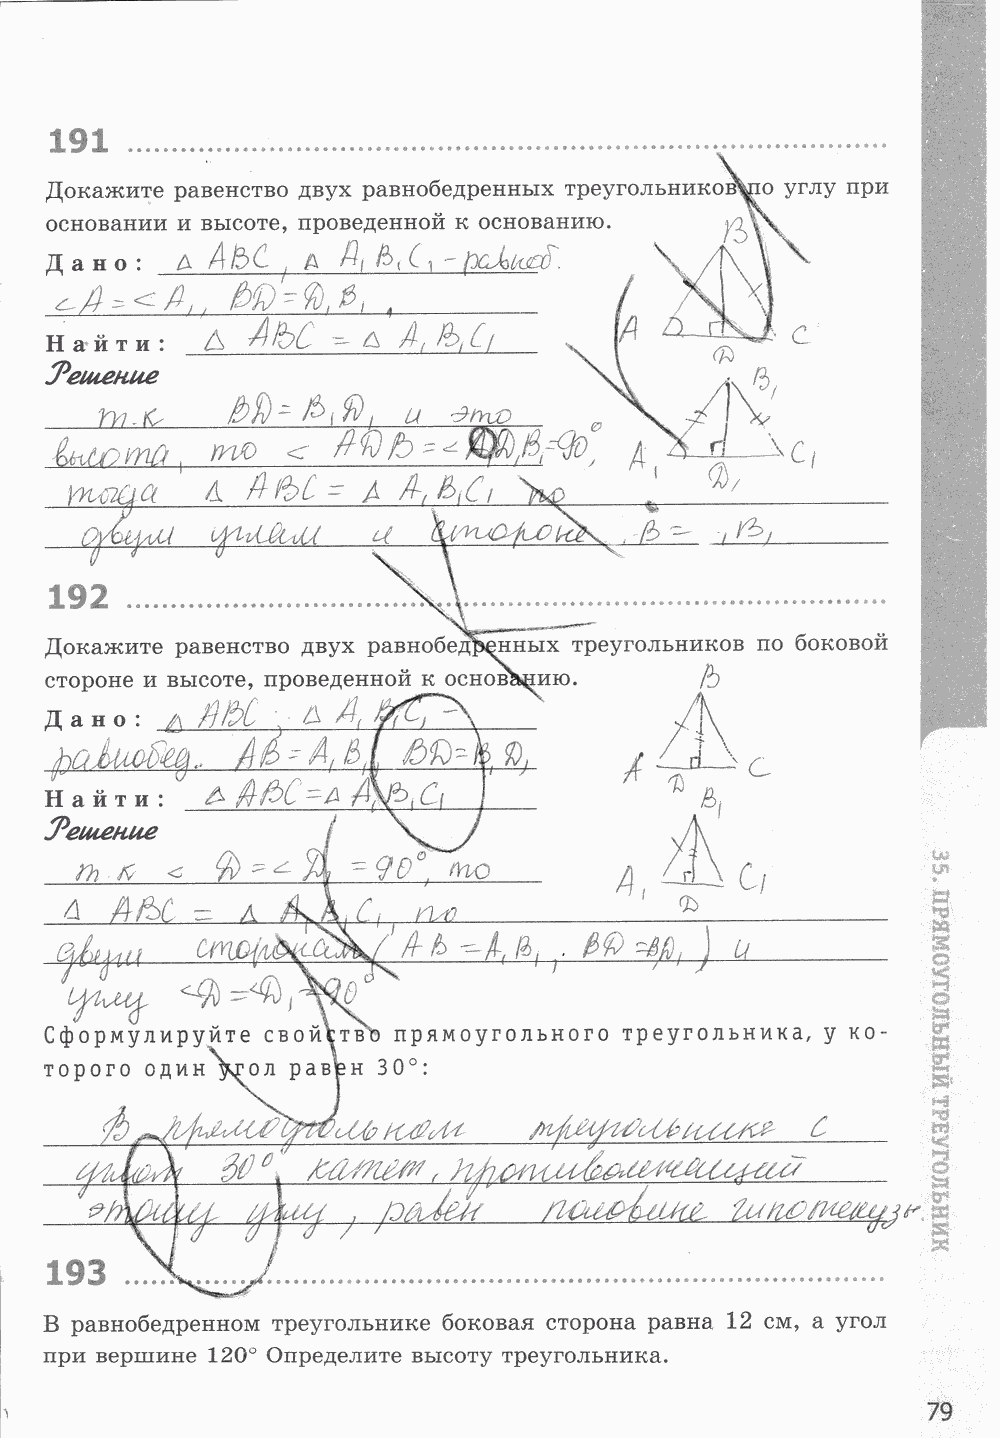 191
Докажите равенство двух равнобедренных треугольников по углу при
основании и высоте, проведенной к основанию.
Дано: △ ABC, △ A₁B₁C₁ - равноб.
<A = <A₁, BD = D₁B₁,
Найти: △ ABC = △ A₁B₁C₁
Решение
т.к BD = B₁D₁ и это
высота, то < ADB = < A₁D₁B₁ = 90°,
тогда △ ABC = △ A₁B₁C₁ по
двум углам и стороне B = B₁
B
A
D
C
B₁
A₁
D₁
C₁
192
Докажите равенство двух равнобедренных треугольников по боковой
стороне и высоте, проведенной к основанию.
Дано: △ ABC; △ A₁B₁C₁ -
равнобед. AB = A₁B₁, BD = B₁D₁
Найти: △ ABC = △ A₁B₁C₁
Решение
т.к < D = < D₁ = 90°, то
△ ABC = △ A₁B₁C₁, по
двум сторонам (AB = A₁B₁, BD = BD₁) и
углу <D = <D₁ = 90°
B
A
D
C
B₁
A₁
D
C₁
Сформулируйте свойство прямоугольного треугольника, у ко-
торого один угол равен 30°:
В прямоугольном треугольнике с
углом 30° катет, противолежащий
этому углу, равен половине гипотенузы.
193
В равнобедренном треугольнике боковая сторона равна 12 см, а угол
при вершине 120° Определите высоту треугольника.
35. ПРЯМОУГОЛЬНЫЙ ТРЕУГОЛЬНИК
79